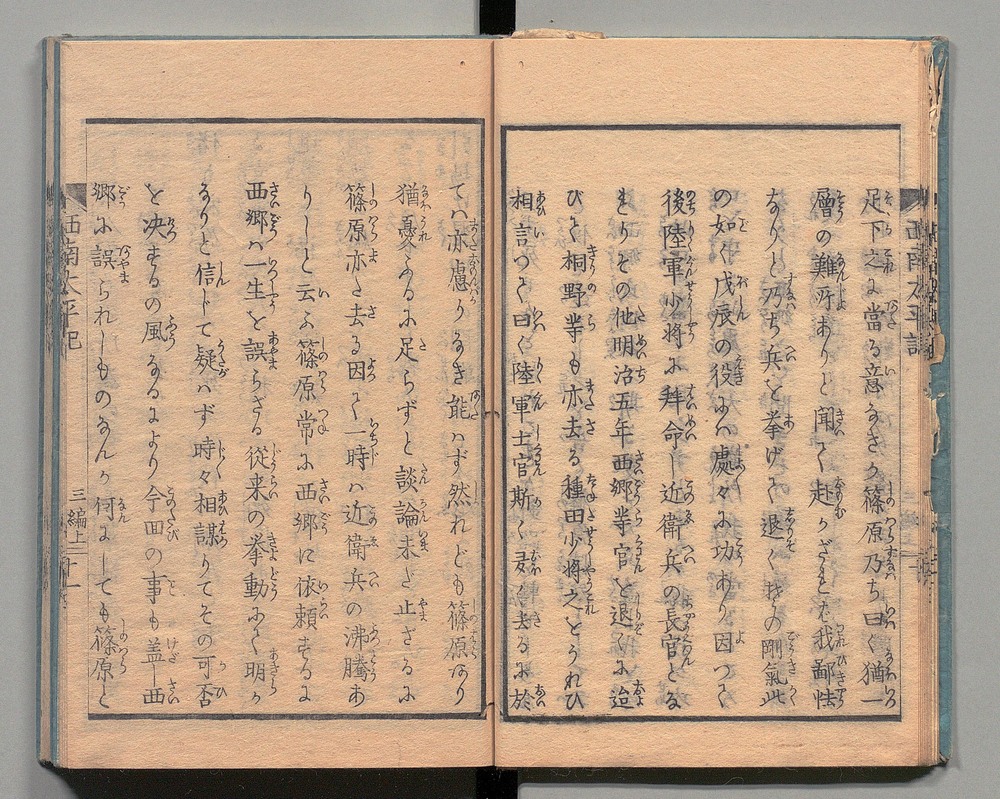 足下之に當る意なきか篠原乃ち曰く猶一
層の難所ありと聞て赴かざれば我鄙怯
なりと乃ち兵を挙げて退く其の剛氣此
の如く戊辰の役には處々に功あり因つて
後陸軍少将に拜命し近衛兵の長官とな
るりその他明治五年西郷等官を退くに迨
ひて桐野等も亦去る種田少将之をうれひ
相言つて曰く陸軍士官斯く夛く去るに於
てハ亦慮りなき能ハず然れども篠原あり
猶憂ふるに足らずと談論未だ止ざるに
篠原亦た去る因て一時ハ近衛兵の沸騰あ
りしと云ふ篠原常に西郷に依頼するに
西郷ハ一生を誤らざる從来の挙動にて明か
なりと信じて疑ハず時々相謀りてその可否
を决するの風なるより今回の事も盖し西
郷に誤られしものなんか何にしても篠原と
西南太平記
三編上
十一